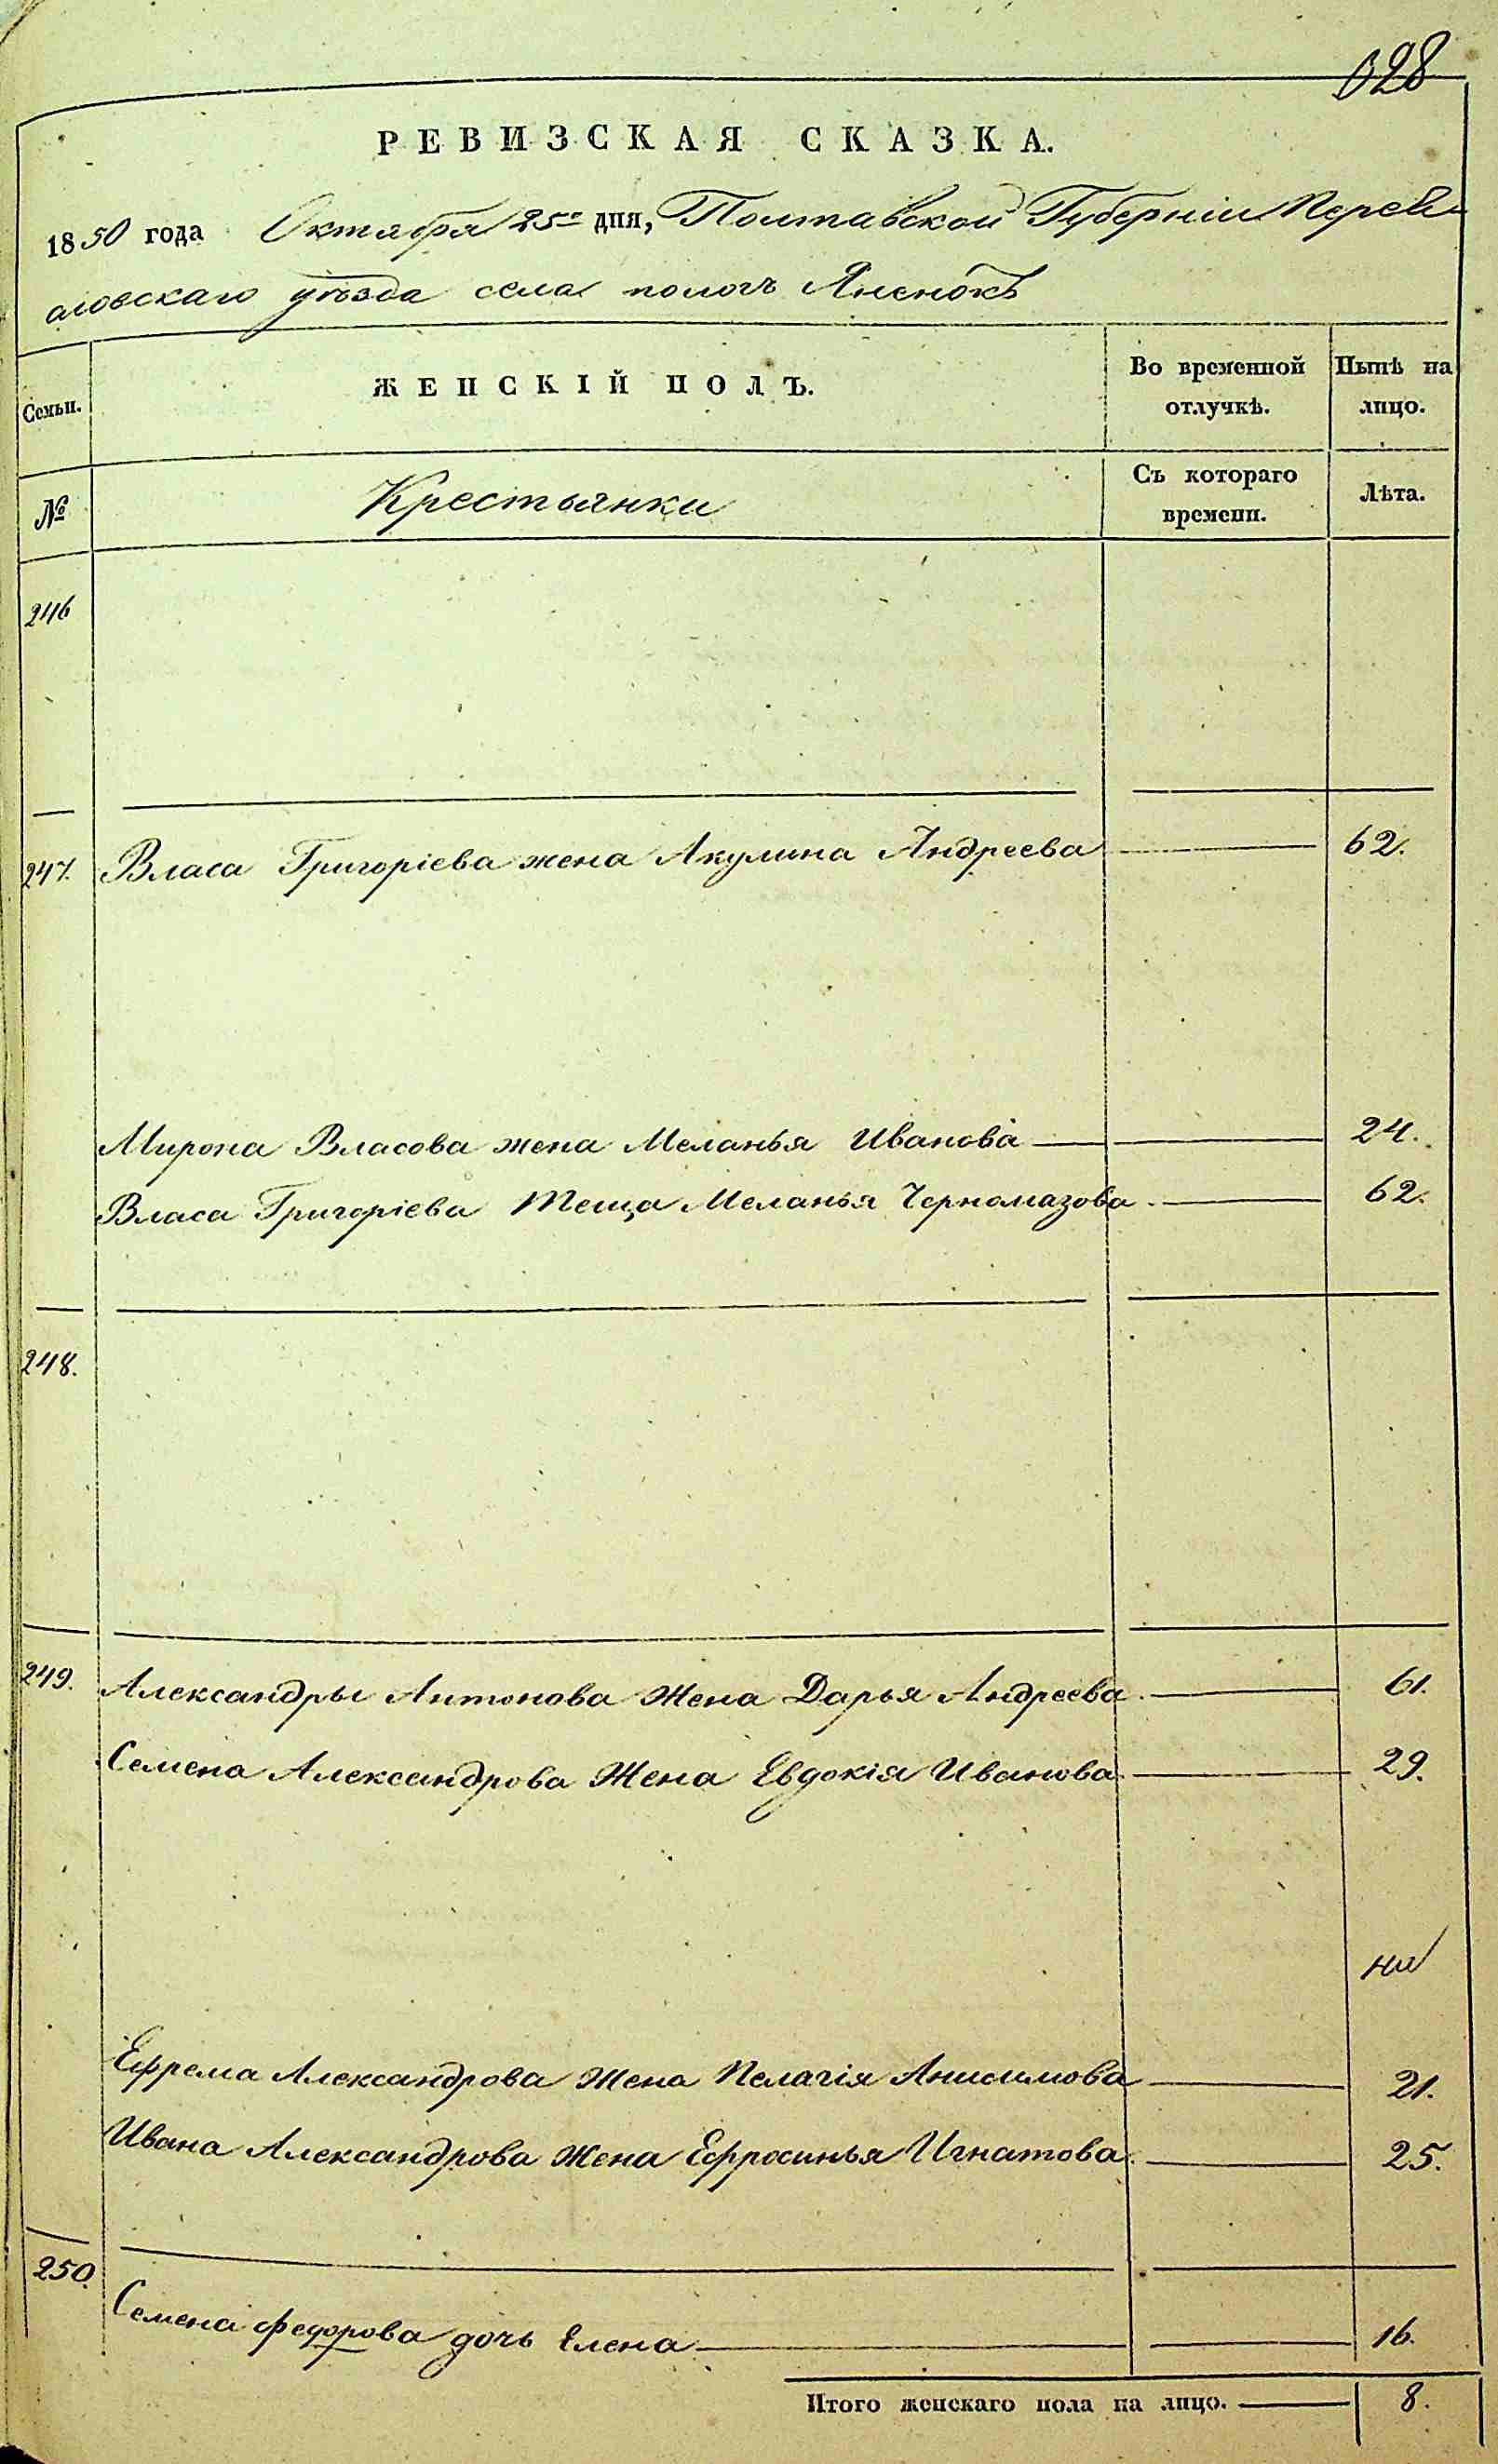 628
РЕВИЗСКАЯ СКАЗКА.
1850 года Октября 25го дня, Полтавской Губерніи Перея-
словскаго уѣзда села Яненокъ
Семьи.
ЖЕНСКІЙ ПОЛЪ.
Во временной отлучкѣ.
Нынѣ на лицо.
№
Крестьянки
Съ котораго времени.
Лѣта.
246
247. Власа Григоріева жена Акулина Андреева 62.
Мирона Власова жена Меланья Иванова 24.
Власа Григоріева Теща Меланья Черномазова 62.
248.
249. Александры Антонова Жена Дарья Андреева 61.
Семена Александрова Жена Евдокія Иванова 29.
Ефрема Александрова Жена Пелагія Анисимова 21.
Ивана Александрова Жена Ефросинья Игнатова 25.
250.
Семена Федорова дочь Елена 16.
Итого женскаго пола на лицо. 8.